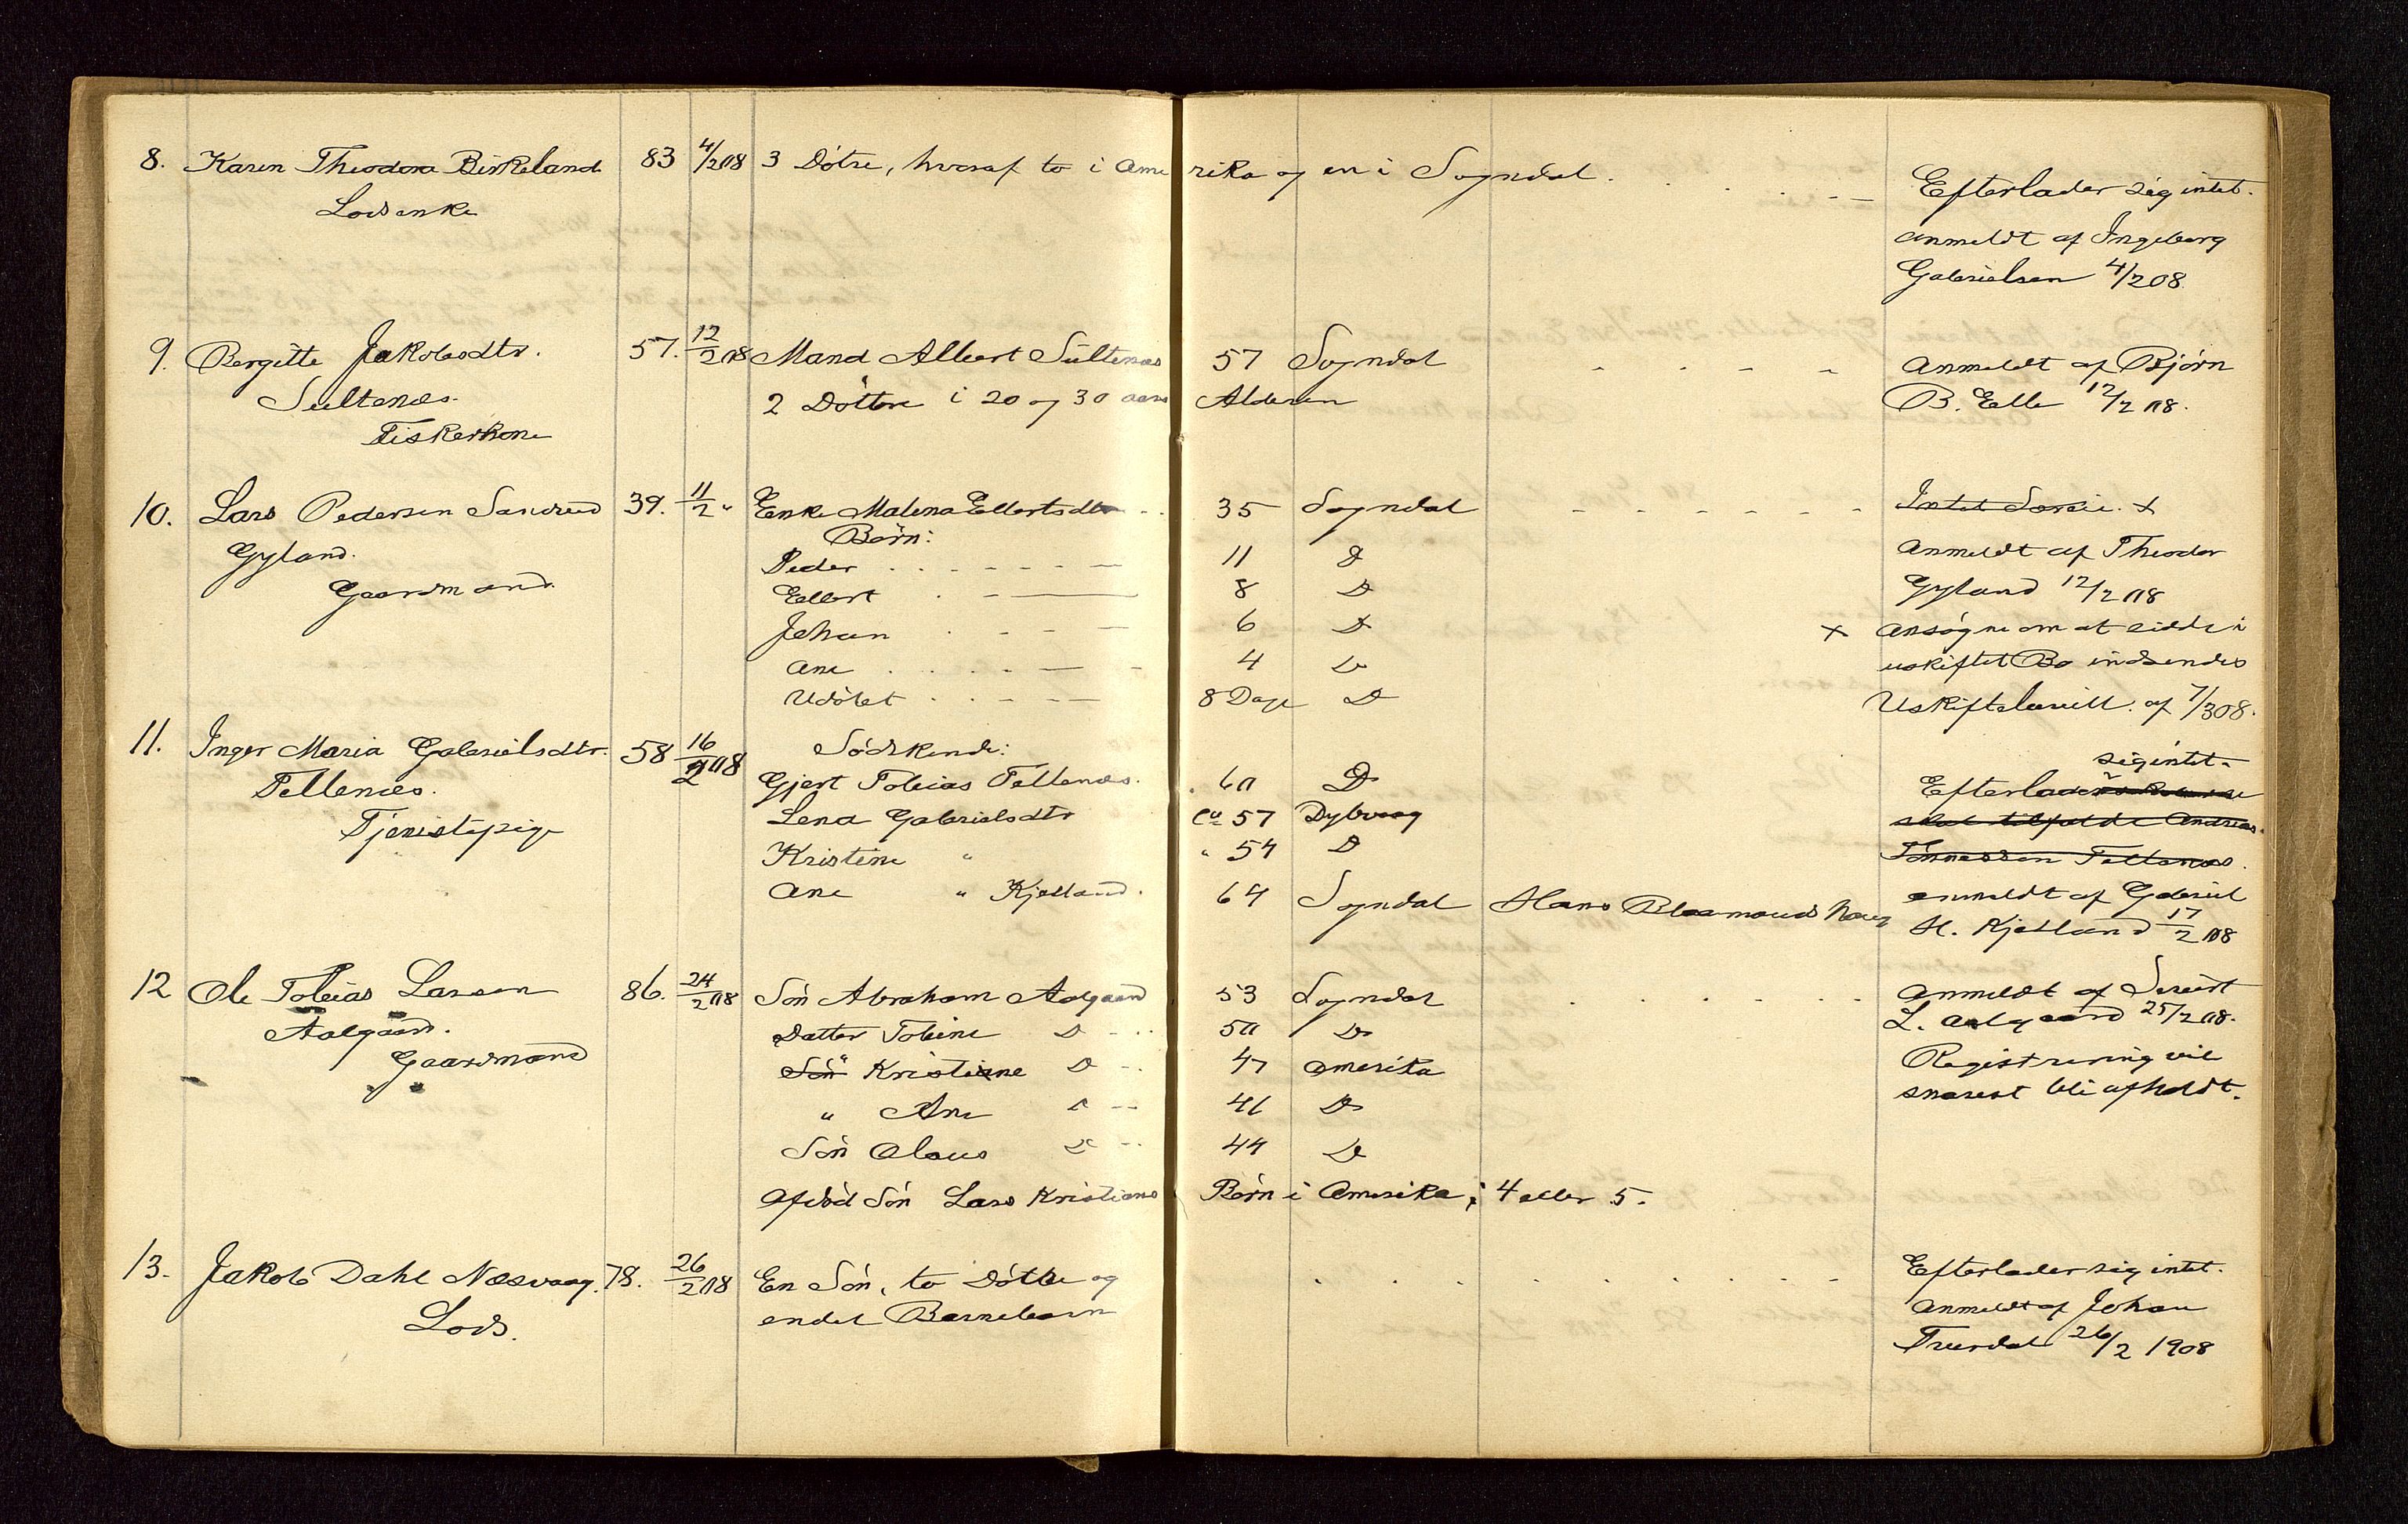 8. Karen Theodora Birkeland 83 4/2 08 3 Døtre, hvoraf to i Amerika og en i Sogndal. Efterlader sig intet.
Lodsenke
anmeldt af Ingeborg
Gabrielsen 4/2 08
9. Bergitte Jakobsdtr. 57. 12/2 08 Mand Albert Sültenæs 57 Sogndal Anmeldt af Bjørn
Sültenæs. 2 Døttre i 20 og 30 aars Alderen B. Eelle 12/2 08.
Fiskerkone
10. Lars Pedersen Sandrud 39. 11/2 " Enke Malena Ellertsdtr 35 Sogndal Intet Særeie. x
Gyland. Børn: anmeldt af Theodor
Gaardmand. Peder 11 D
Ellert 8 D Gyland 12/2 08
Johan 6 D x Ansøgne om at sidde i
Ane 4 D uskiftet Bo indsendes
Udøbt 8 Dage D Uskiftebevill. af 7/3 08.
11. Inger Maria Gabrielsdtr. 58 16/2 08 Södskende: sig intet.
Fellenæs. Gjert Tobias Fellenæs. 60 D Efterlader
Tjenistepige Lena Gabrielsdtr ca 57 Dybvaag skal tilfalde Andreas
Kristine " " 54 D Tønnessen Fellenæs.
Ane " Kjelland. 64 Sogndal Hans Blaamands Haug anmeldt af Gabriel
H. Kjelland 17/2 08
12 Ole Tobias Larsen 86. 24/2 08 Søn Abraham Aalgaard 53 Sogndal Anmeldt af Sivert
Aalgaard. Datter Tobine D 50 D L. Aalgaard 25/2 08.
Gaardmand Søn " Kristine D 47 Amerika Registrering vil
" Ane D 46 D snarest bli afholdt.
Søn Olaus D 44 D
Afdød Søn Lars Kristians Børn i Amerika, 4 eller 5.
13. Jakob Dahl Næsvaag. 78. 26/2 08 En Søn, to Døttre og Efterlader sig intet.
Lods. endel Barnebarn Anmeldt af Johan
Truerdal 26/2 1908